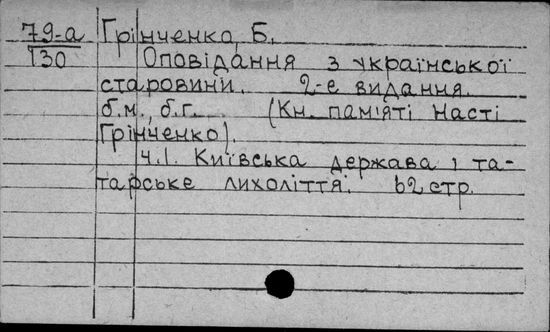 79-а Грінченко, Б.
130 Оповідання з української
старовини. 2-е видання.
б.м., б.г. (Кн. пам'яті Насті
Грінченко).
Ч.І. Київська держава і та-
тарське лихоліття. 62 стр.